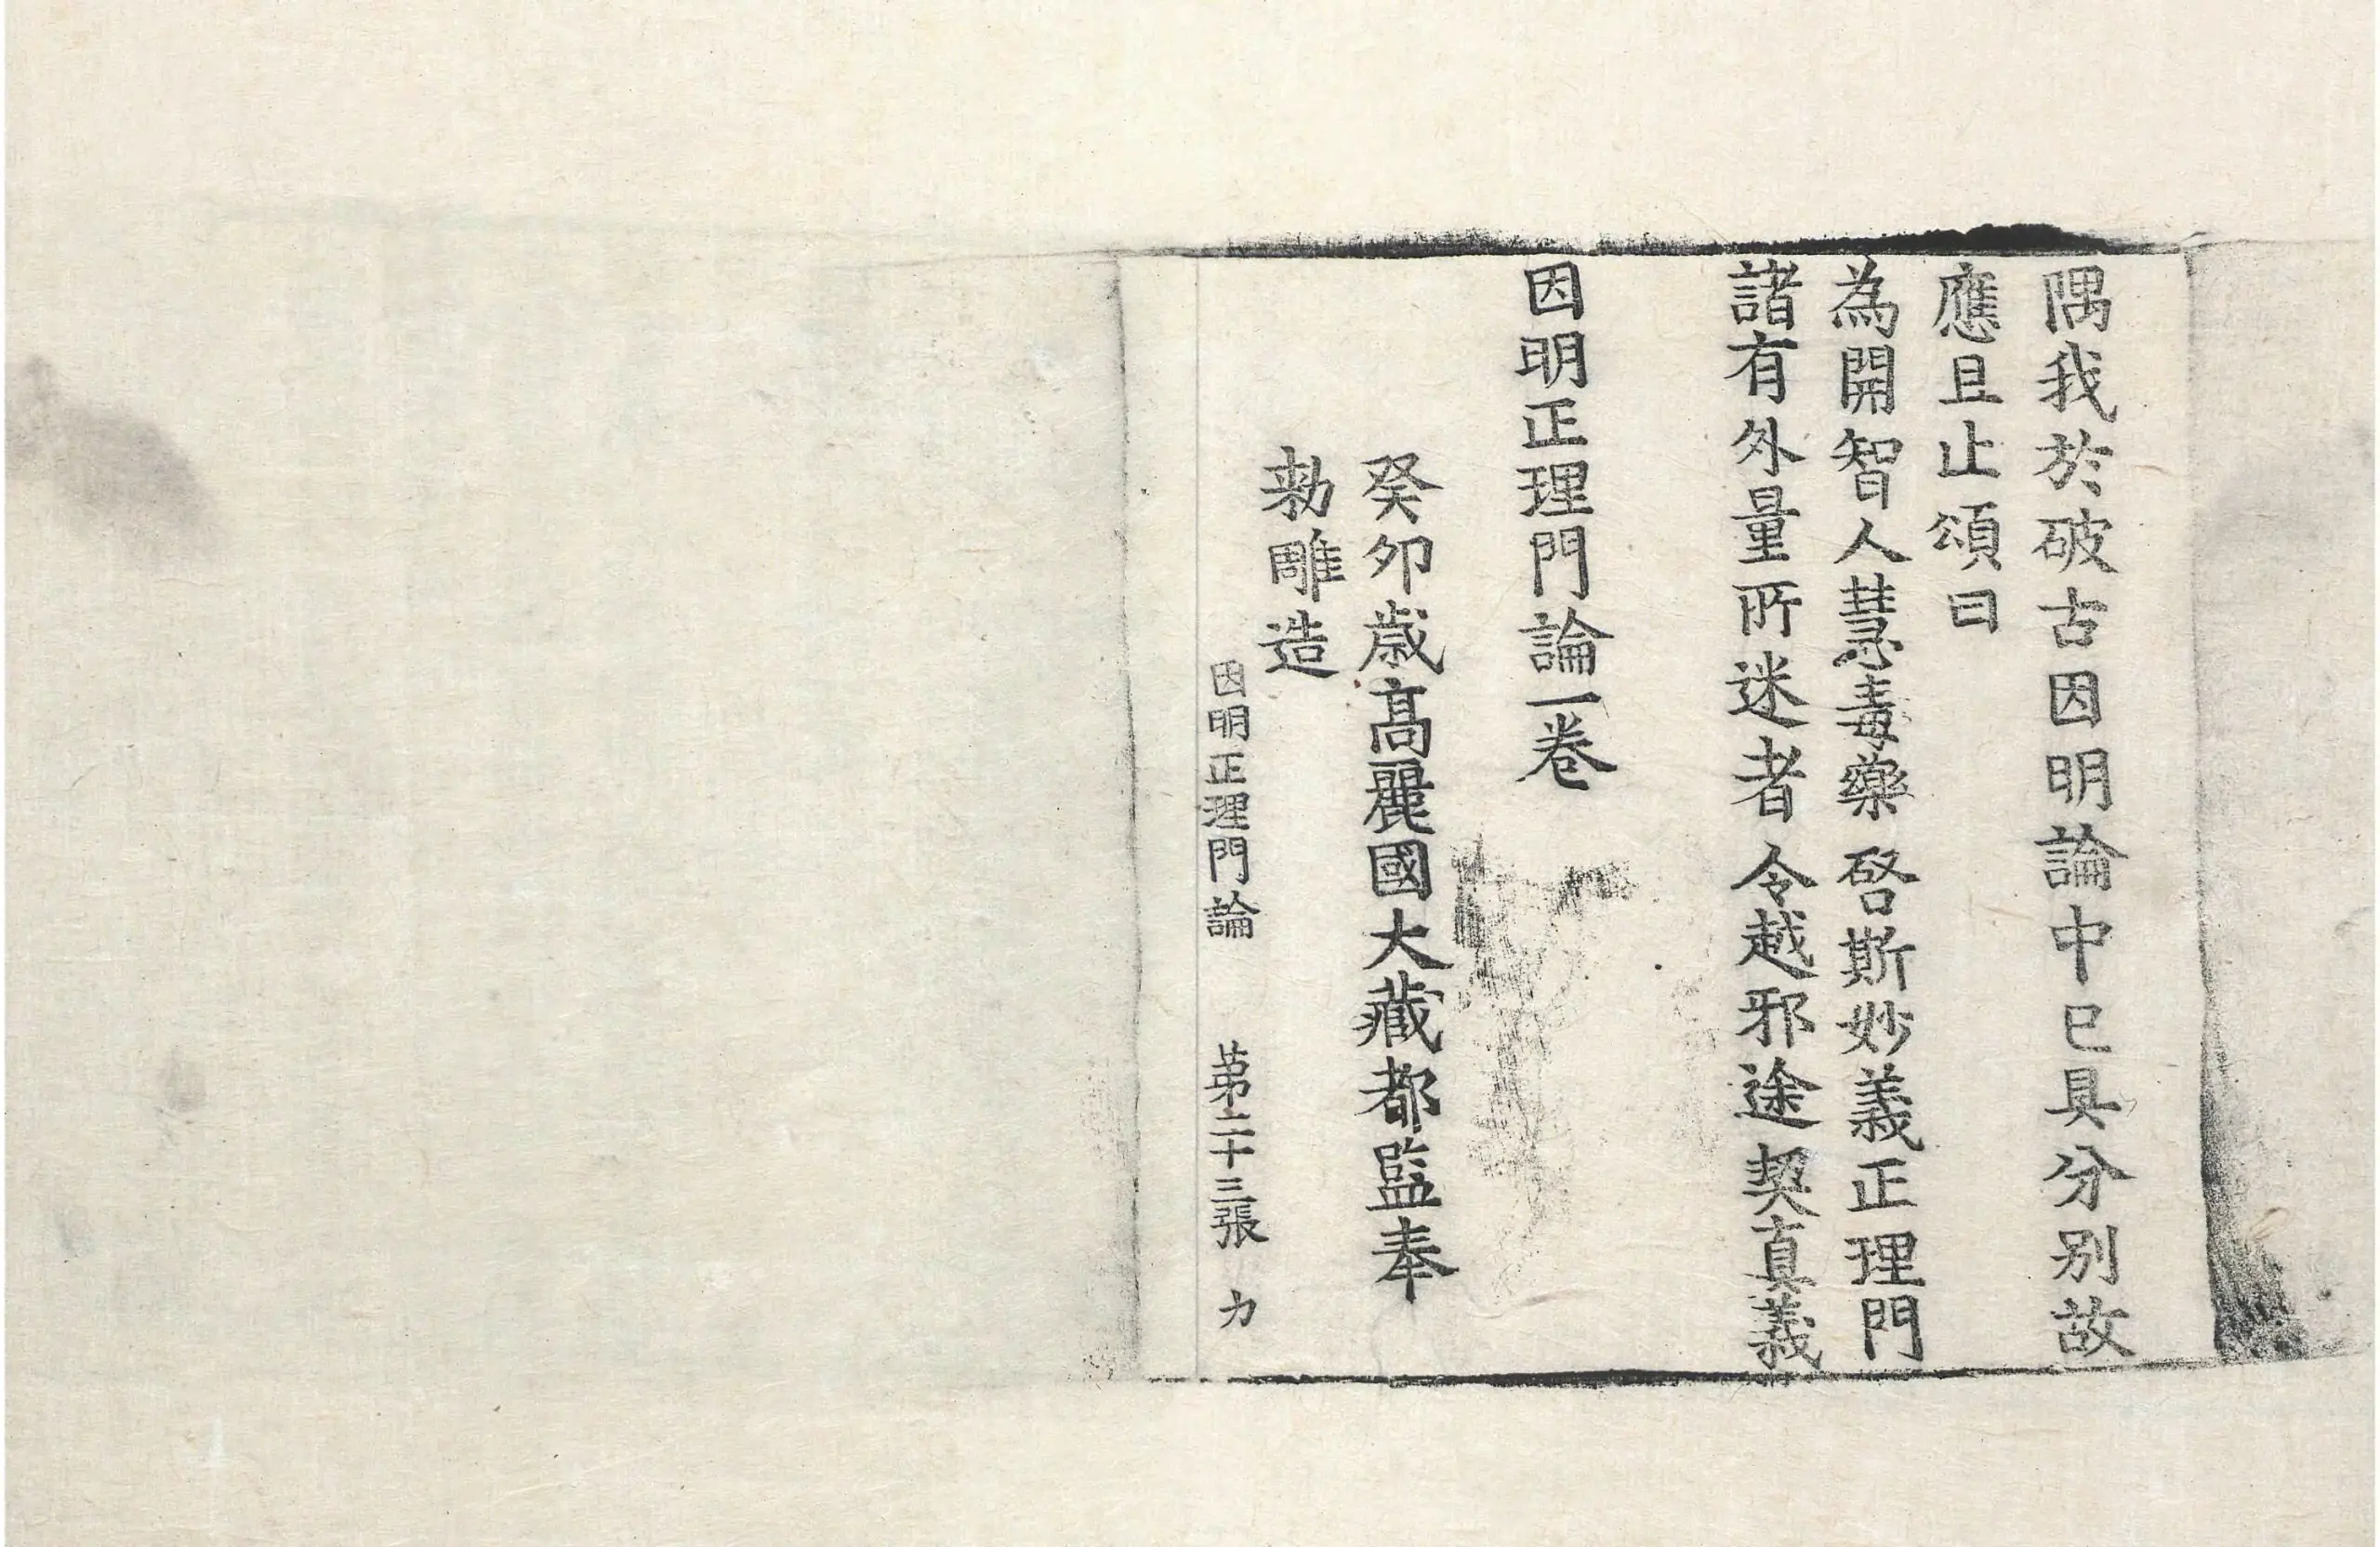 隅我於破古因明論中已具分别故
應且止頌曰
為開智人慧毒藥 啓斯妙義正理門
諸有外量所迷者 令越邪途契真義
因明正理門論一卷
癸卯歲高麗國大藏都監奉
勑雕造
因明正理門論 第二十三張 力